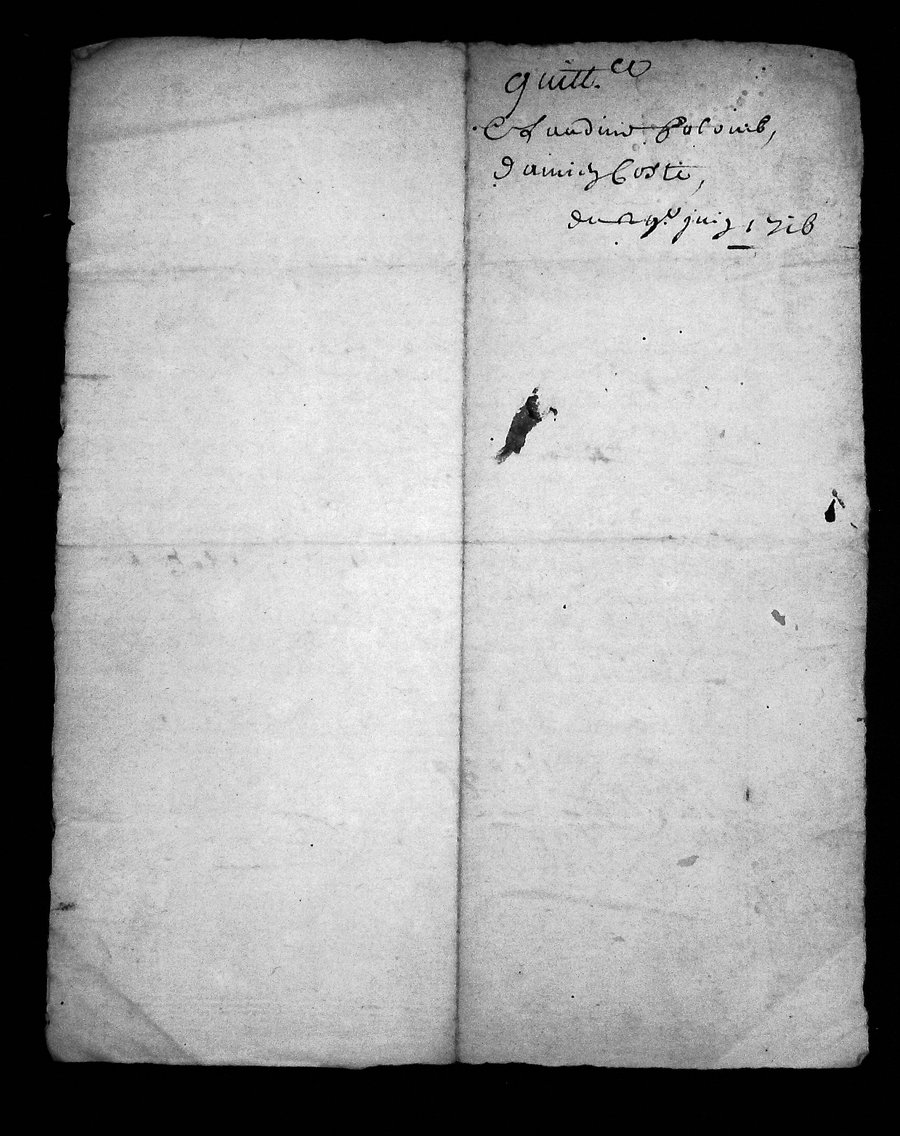 quitt.ce
Claudine Colomb,
Damien Coste,
du 29e juin 1716